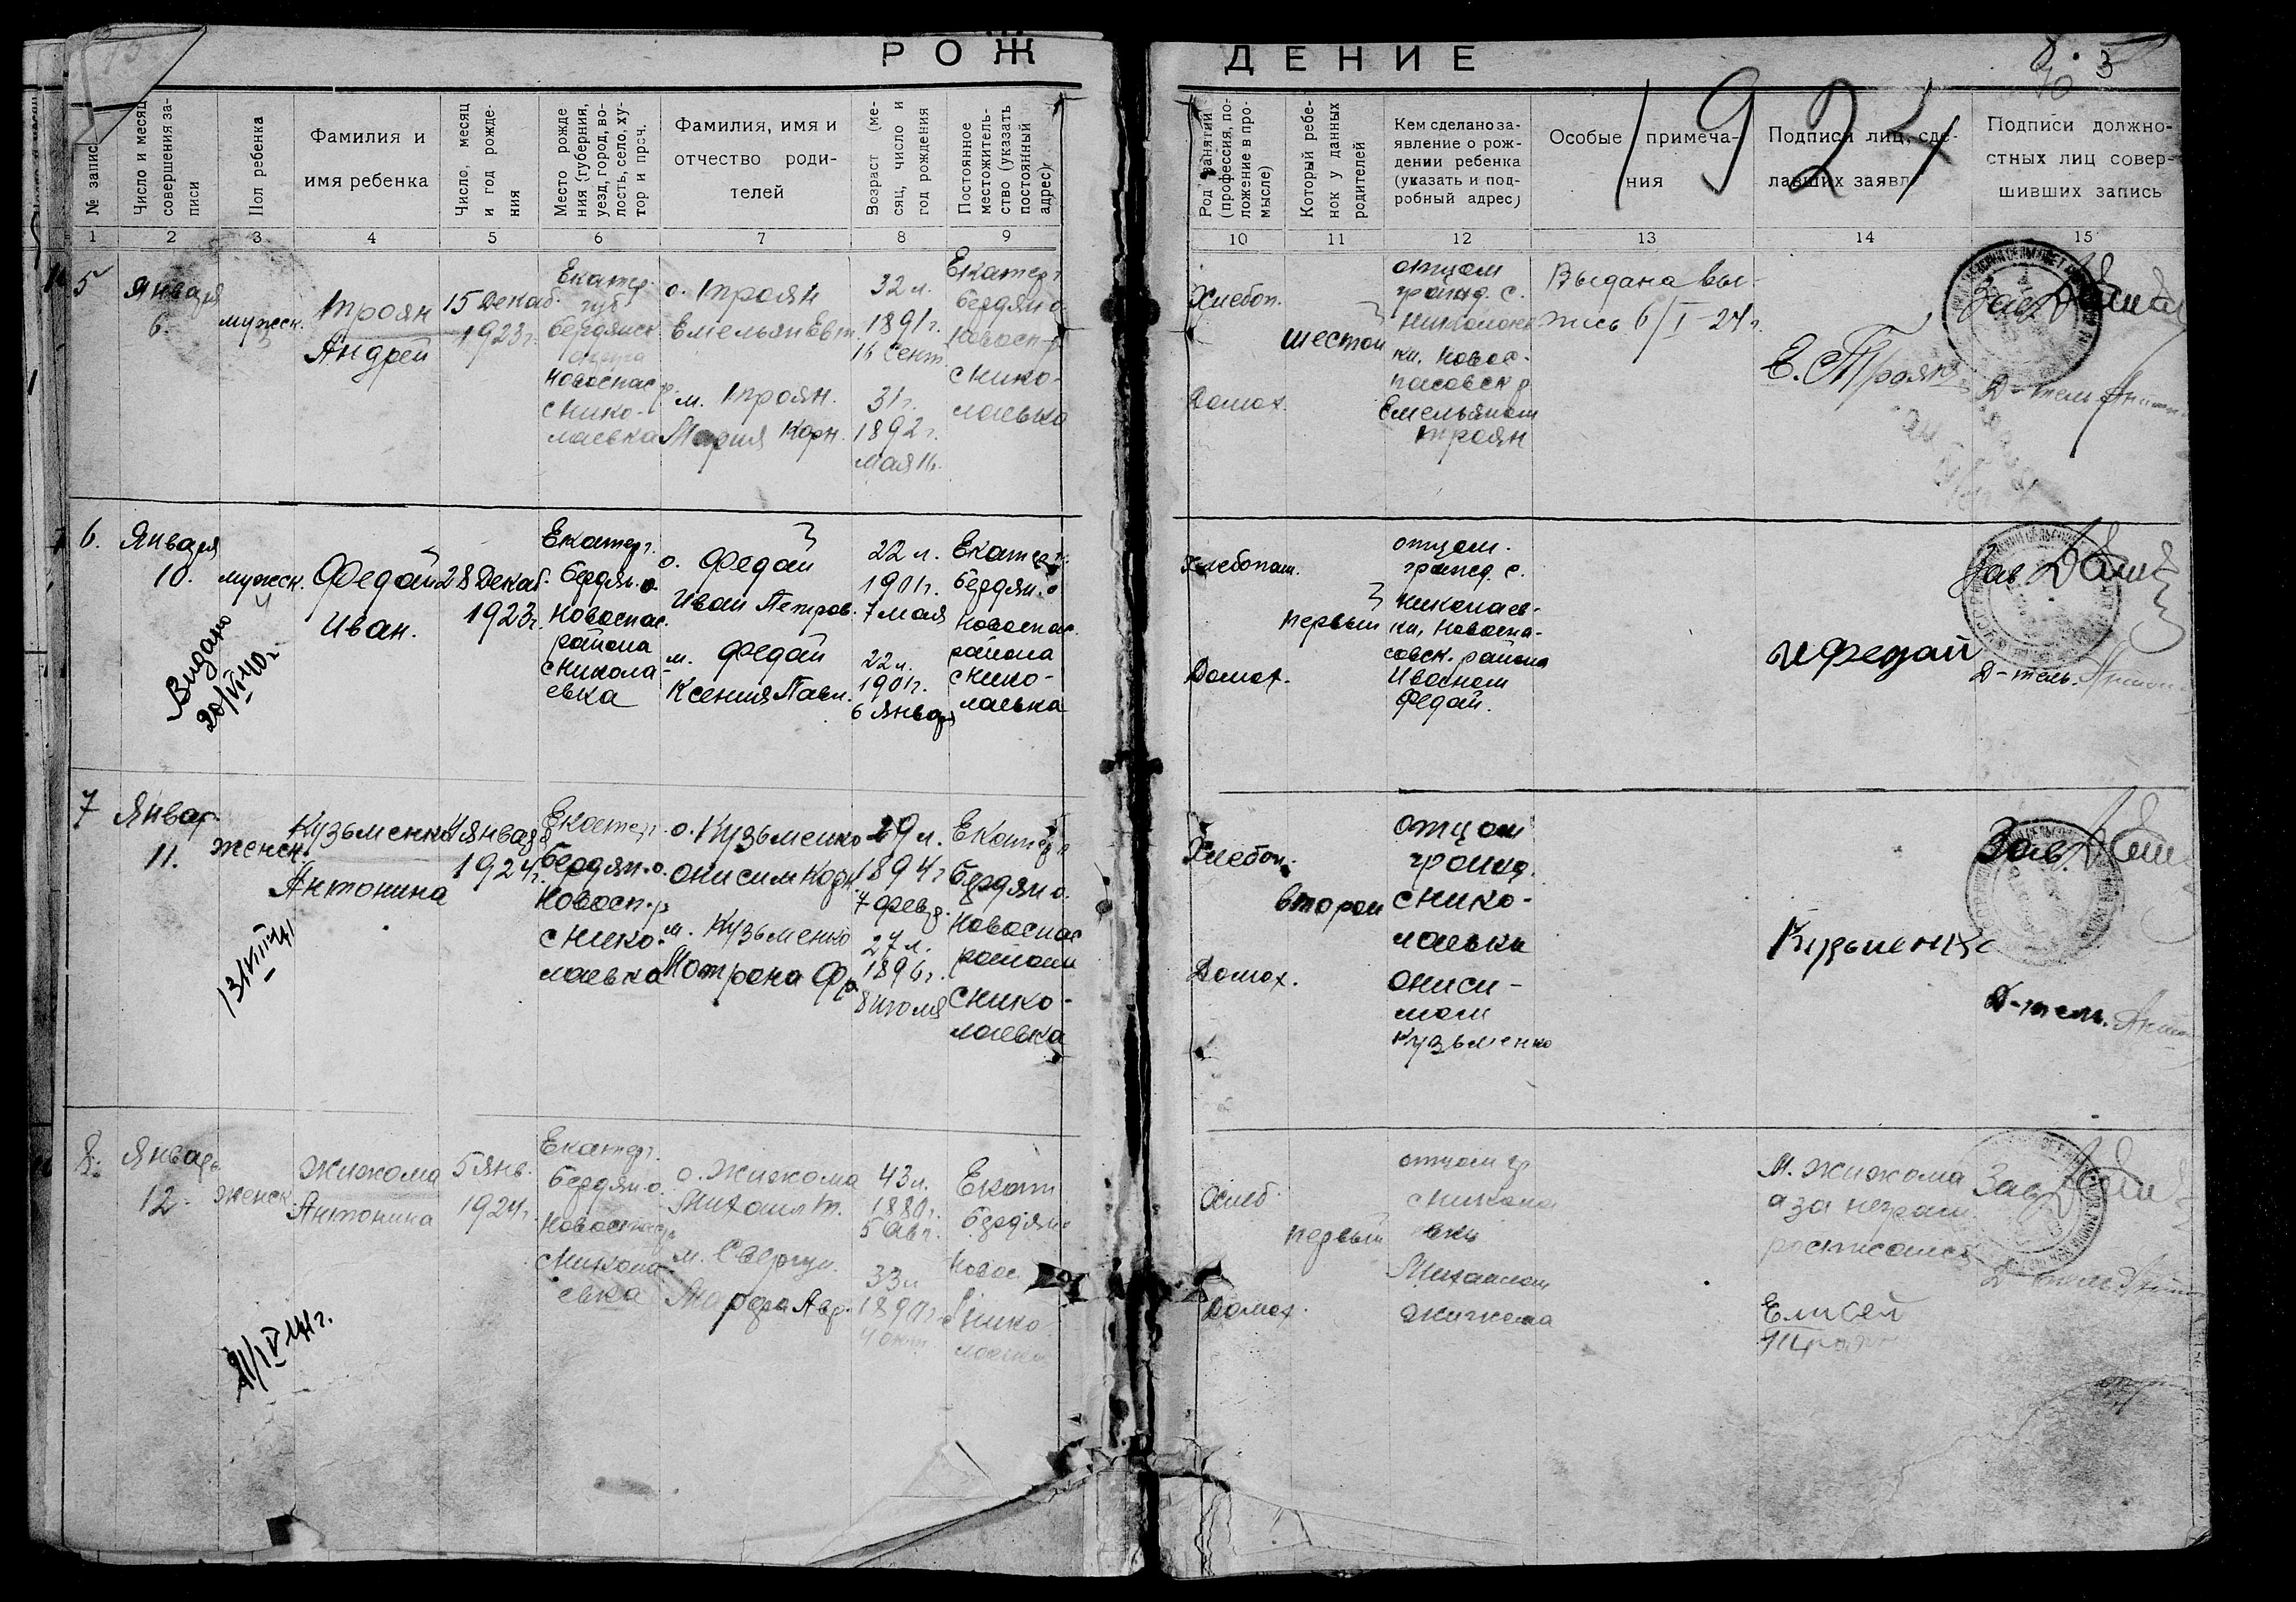 РОЖДЕНИЕ
1924
3
№ записи
Число и месяц совершения за-
писи
Пол ребенка
Фамилия и
имя ребенка
Число, месяц
и год рожде-
ния
Место рожде
ния (губерния,
уезд, город, во-
лость, село, ху-
тор и проч.
Фамилия, имя и
отчество роди-
телей
Возраст (ме-
сяц, число и
год рождения
Постоянное
местожитель-
ство (указать
постоянный
адрес)
Род занятий
(профессия, по-
ложение в про-
мысле)
Который ребе-
нок у данных
родителей
Кем сделано за-
явление о рож-
дении ребенка
(указать и под-
робный адрес)
Особые примеча-
ния
Подписи лиц, сде-
лавших заявл
Подписи должно-
стных лиц совер-
шивших запись
1 2 3 4 5 6 7 8 9 10 11 12 13 14 15
5
Января
6.
мужск.
Троян
Андрей
15 Декаб.
1923г.
Екатер.
губ
бердянск.
округа
Новоспас р.
с Нико-
лаевка
о. Троян
Емельян Евт.
м. Троян.
Мария Корн.
32 л.
1891г.
16 Сент.
31г.
1892г.
Мая 16.
Екатерг.
бердян о.
Новосп. р
с Нико-
лаевка
Хлебоп.
Домох.
шестой
отцом
гражд. с.
Николаев
ки, Новос-
пасовск р
Емельяном
Троян
Выдана вы-
пись 6/I-24г.
Е. Троян
Зав.
Д-тель
6.
Января
10.
мужск.
Федай
Иван.
28 Декаб.
1923г.
Екатерг.
бердян. о.
Новоспас.
района
с Никола-
евка
о. Федай
Иван Петров.
м. Федай
Ксения Павл.
22 л.
1901г.
7 мая
22 л.
1901г.
6 Январ
Екатерг.
бердян. о
Новоспас.
района
с Нико-
лаевка
Хлебопаш.
Домох.
первый
отцом.
гражд. с.
Николаев-
ки, Новоспа-
совск. района
Иваном
Федай.
И Федай
Зав
Д-тель.
Видано
20/VI 40г.
7
Январ.
11.
женск.
Кузьменко
Антонина
4 января
1924г.
Екатер.
бердян. о.
Новосп. р
с Нико-
лаевка
о. Кузьменко
Онисим Корн.
м. Кузьменко
Мотрона Фр
29 л.
1894г
7 февр.
27 л.
1896г.
8 июля
Екатер г
бердян о.
Новоспас
района
с Нико-
лаевка
Хлебоп.
Домох.
второй
отцом
гражд.
с Нико-
лаевки
Ониси-
мом
Кузьменко
Кузьменко
Зав.
Д-тель.
13/VIII 41
8.
Январь
12.
женск.
Жижома
Антонина
5 Янв.
1924г.
Екатерг.
бердян. о.
Новоспас р
с Никола
евка
о. Жижома
Михаил Т.
43 л.
1880г.
5 Авг.
33 л
Екат
бердян о
Новос
с Нико
лаевка
Хлеб
Домох.
первый
отцом гр
с Никола
евки
Михаилом
Жижома
М. Жижома
а за неграм.
росписался
Елисей
Троян
Зав
Д-тель
21/IV 41г.